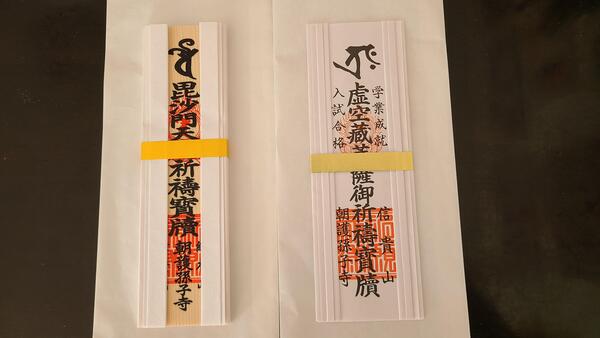 毘沙門天祈禱寶牘
朝護孫子寺
学業成就
虚空藏菩薩御祈禱寶牘
入試合格
信貴山
朝護孫子寺